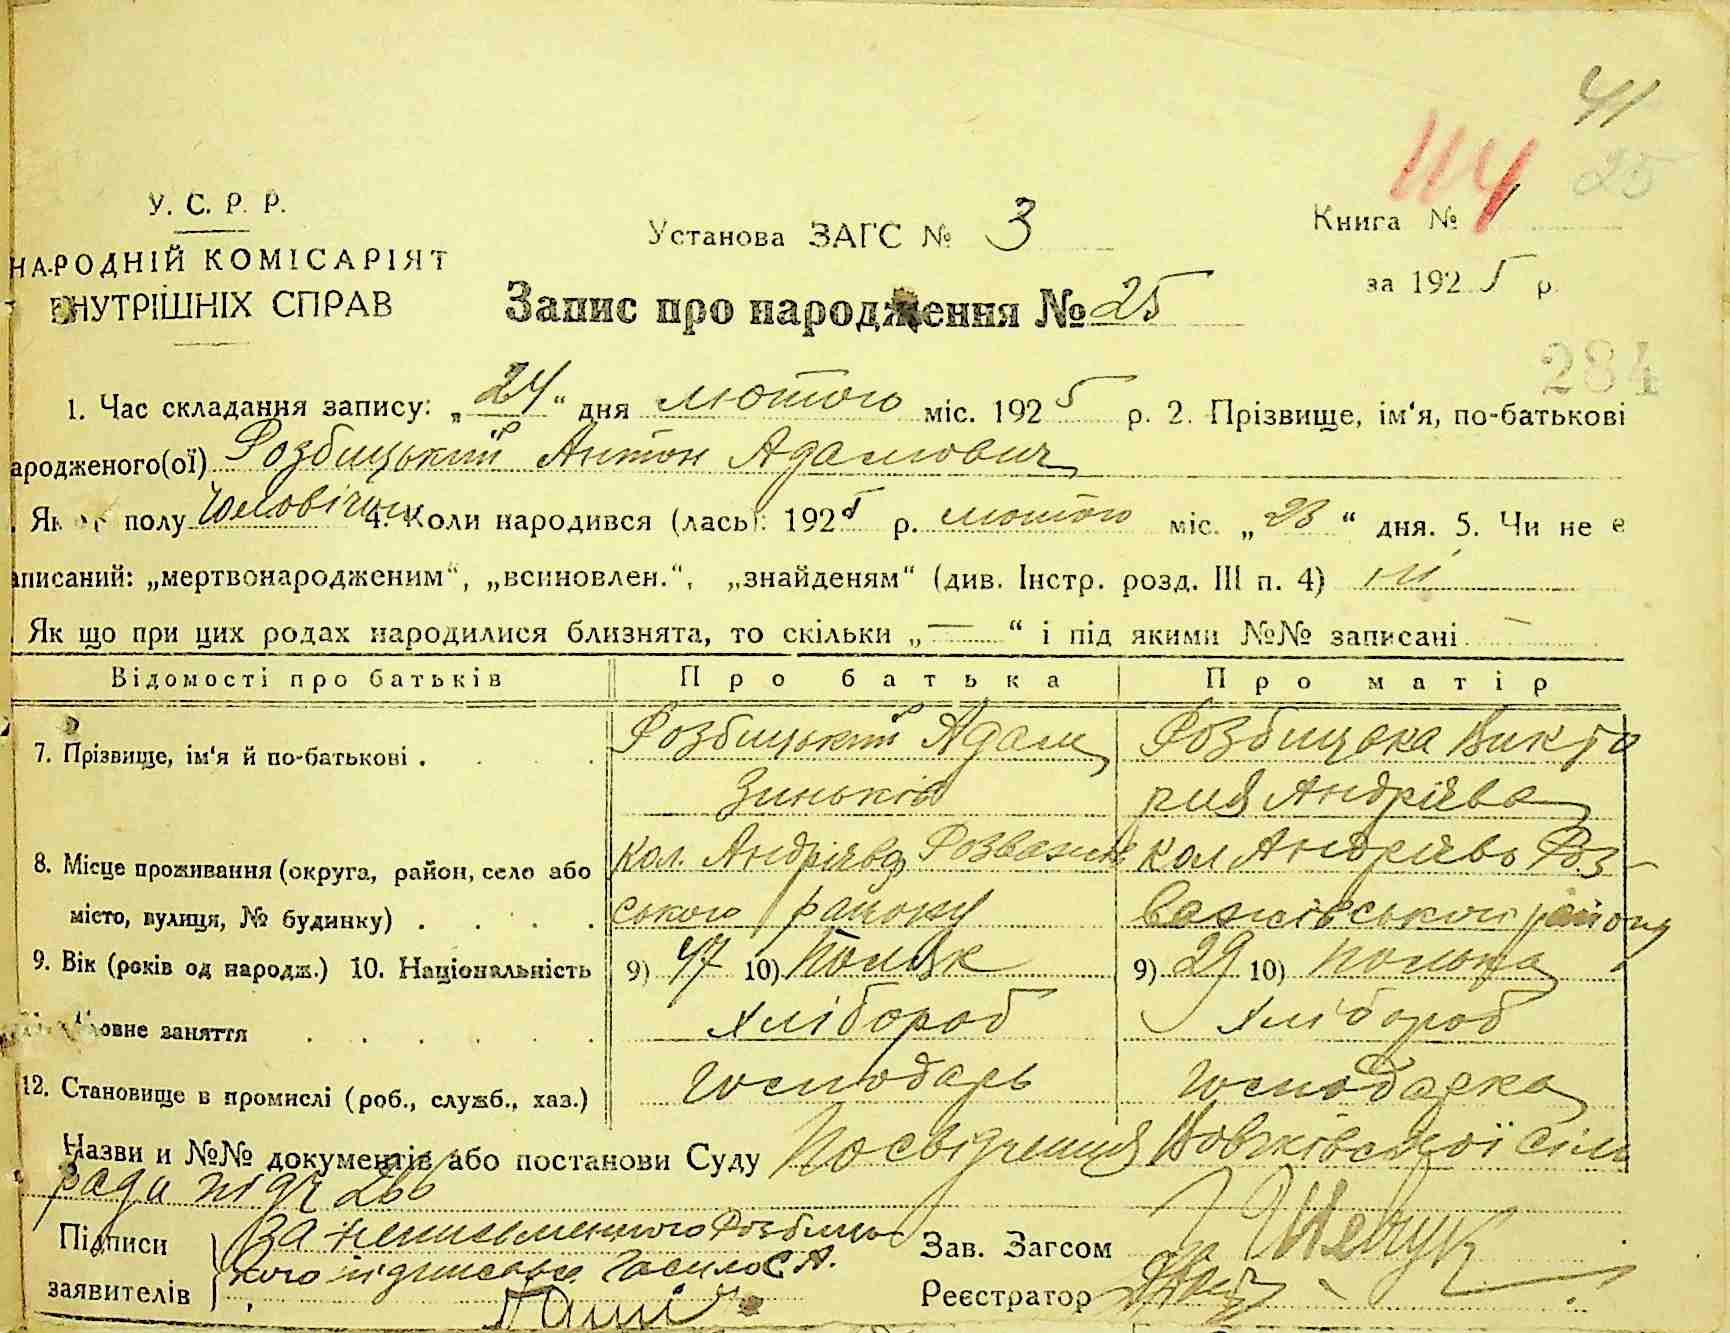 41
114 25
У. С. Р. Р.
Установа ЗАГС № 3
Книга № 1
НАРОДНІЙ КОМІСАРІЯТ
ВНУТРІШНІХ СПРАВ
за 1925 р.
Запис про народження № 25
284
1. Час складання запису: „24“ дня лютого міс. 1925 р. 2. Прізвище, ім'я, по-батькові
ародженого(ої) Розбицький Антон Адамович
Як полу чоловічи 4. Коли народився (лась): 1925 р. лютого міс. „23“ дня. 5. Чи не є
аписаний: „мертвонародженим“, „всиновлен.“, „знайденям“ (див. Інстр. розд. III п. 4) ні
Як що при цих родах народилися близнята, то скільки „—“ і під якими №№ записані —
Відомості про батьків Про батька Про матір
7. Прізвище, ім'я й по-батькові . Розбицький Адам Розбицька Викто
Зиньків рия Андрієва
8. Місце проживання (округа, район, село або кол. Андрієва Розважів кол Андрієва Роз-
місто, вулиця, № будинку) . ського району важівського району
9. Вік (років од народж.) 10. Національність 9) 47 10) Поляк 9) 29 10) Полька
овне заняття хлібороб хлібороб
12. Становище в промислі (роб., служб., хаз.) господарь господарка
Назви и №№ документів або постанови Суду Посвідчення сіль
ради під ч 266
Підписи за неписьменного Розбиць
Зав. Загсом Шевчук
заявителів кого підписався С А.
Реєстратор